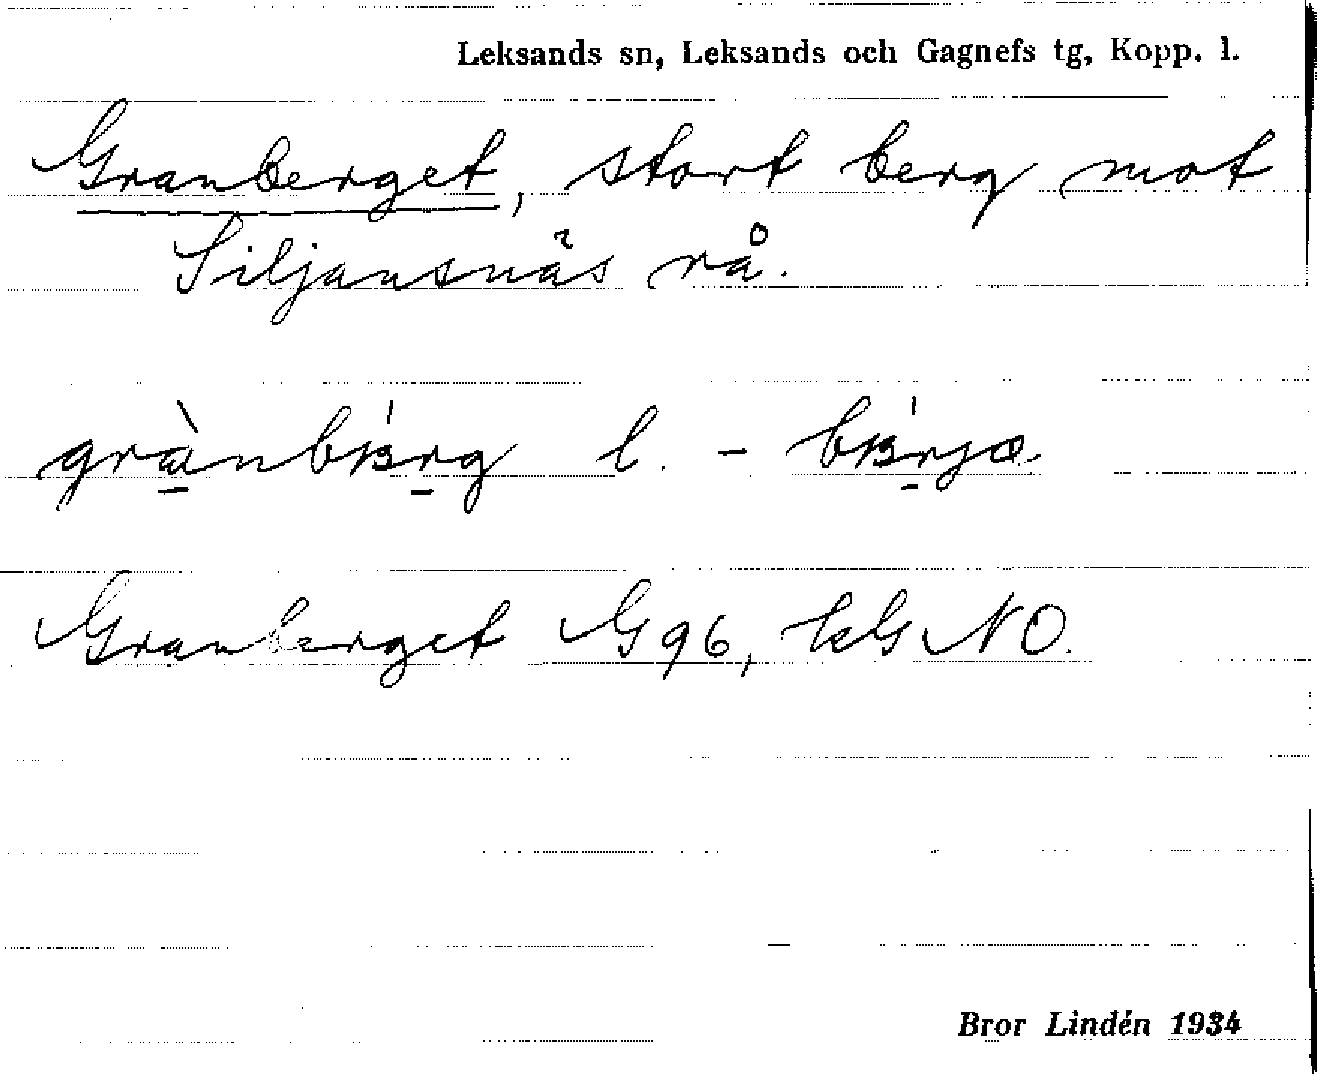 Leksands sn, Leksands och Gagnefs tg, Kopp. l.
Granberget, stort berg mot
Siljansnäs rå.
l. -
Granberget G96, NO.
Bror Lindén 1934